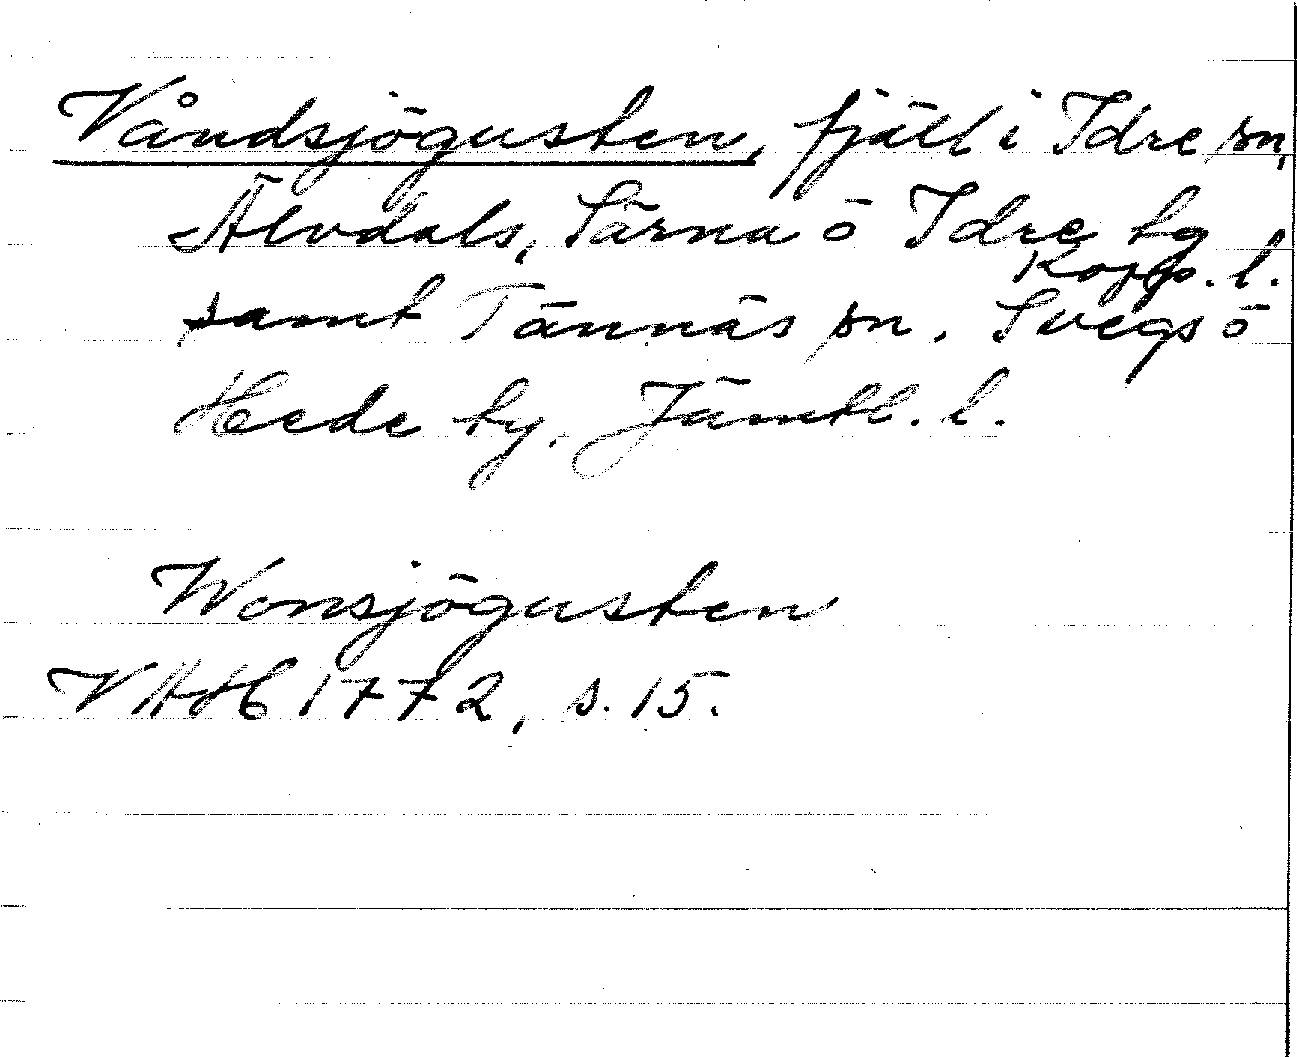 Våndsjögusten, fjäll i Idre sn,
Älvdals, Särna ö Idre tg
Kopp. l.
samt Tännäs sn, Svegs ö
Hede tg, Jämtl. l.
Wonsjögusten
VAH 1772, s. 15.